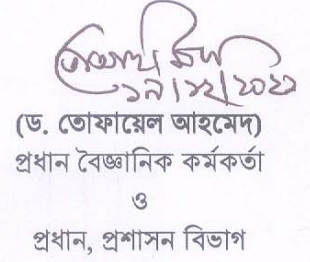 ১৯/১২/২০২২
(ড. তোফায়েল আহমেদ)
প্রধান বৈজ্ঞানিক কর্মকর্তা
ও
প্রধান, প্রশাসন বিভাগ